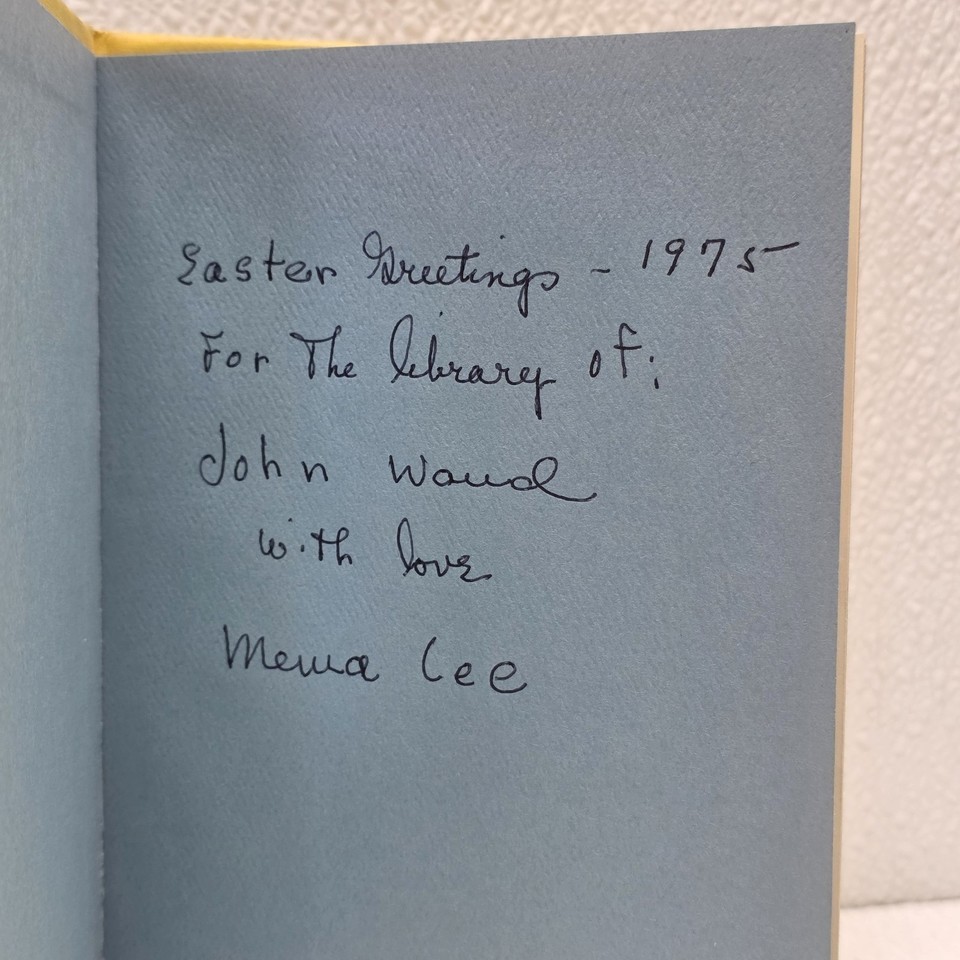 Easter Greetings - 1975
For The library of:
John Waud
with love
Lee